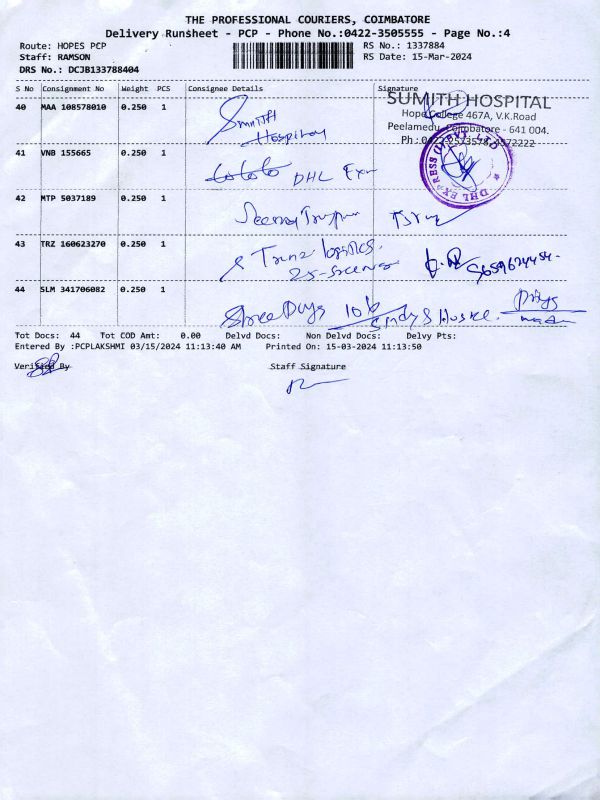 THE PROFESSIONAL COURIERS, COIMBATORE
Delivery Runsheet - PCP - Phone No.:0422-3505555 - Page No.:4
Route: HOPES PCP
RS No.: 1337884
Staff: RAMSON
RS Date: 15-Mar-2024
DRS No.: DCJB133788404
S No Consignment No Weight PCS Consignee Details Signature
40 MAA 108578010 0.250 1
Hospital
SUMITH HOSPITAL
Hope College 467A, V.K.Road
Peelamedu, Coimbatore - 641 004.
Ph.: 0422-2573578, 2572222
41 VNB 155665 0.250 1
DHL
DHL EXPRESS (I) PVT. LTD
42 MTP 5037189 0.250 1
43 TRZ 160623270 0.250 1
Tranz logistics.
44 SLM 341706082 0.250 1
Shree Days
Tot Docs: 44 Tot COD Amt: 0.00 Delvd Docs: Non Delvd Docs: Delvy Pts:
Entered By :PCPLAKSHMI 03/15/2024 11:13:40 AM Printed On: 15-03-2024 11:13:50
Verified By Staff Signature